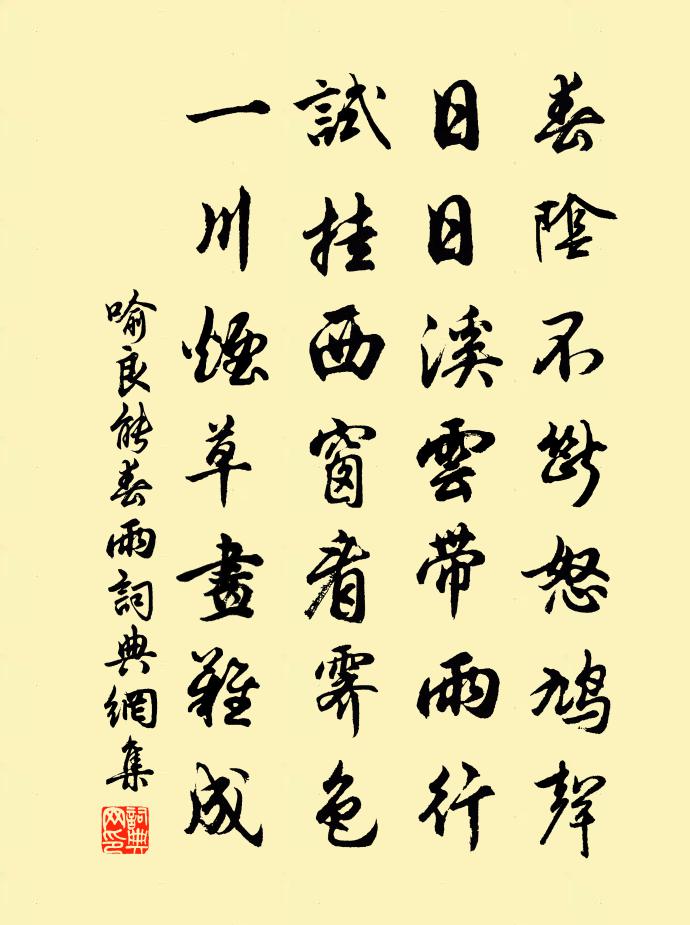 春陰不斷怒鳩聲
日日溪雲帶雨行
試挂西窗看霽色
一川煙草畫難成
喻良能春雨詞典網集
詞典網印